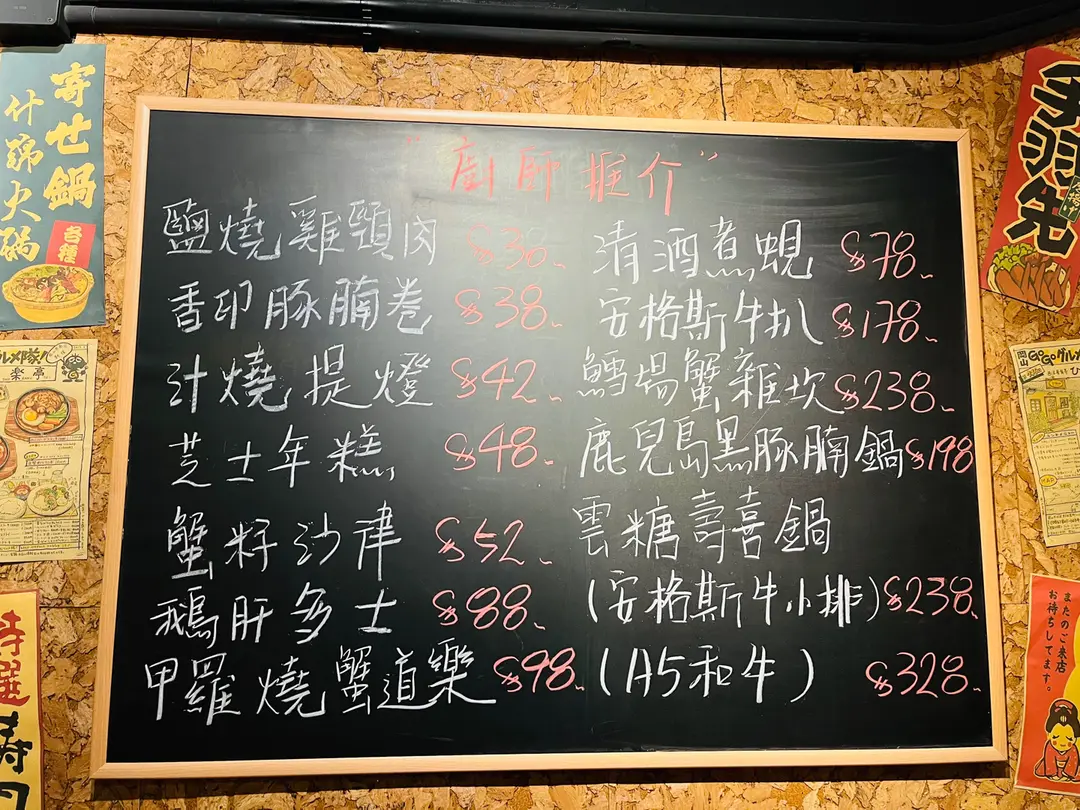 "廚師推介"
鹽燒雞頸肉 $38
香印豚腩卷 $38
汁燒提燈 $42
芝士年糕 $48
蟹籽沙律 $52
鵝肝多士 $88
甲羅燒蟹道樂 $98
清酒煮蜆 $78
安格斯牛扒 $178
鱈場蟹雜炊 $238
鹿兒島黑豚腩鍋 $198
雲糖壽喜鍋
(安格斯牛小排) $238
(A5和牛) $328
寄せ鍋
什錦火鍋
各種
グルメ隊!
楽亭
特選
寿司
手羽先
岡山
GoGoグルメ
またのご来店
お待ちしてます。